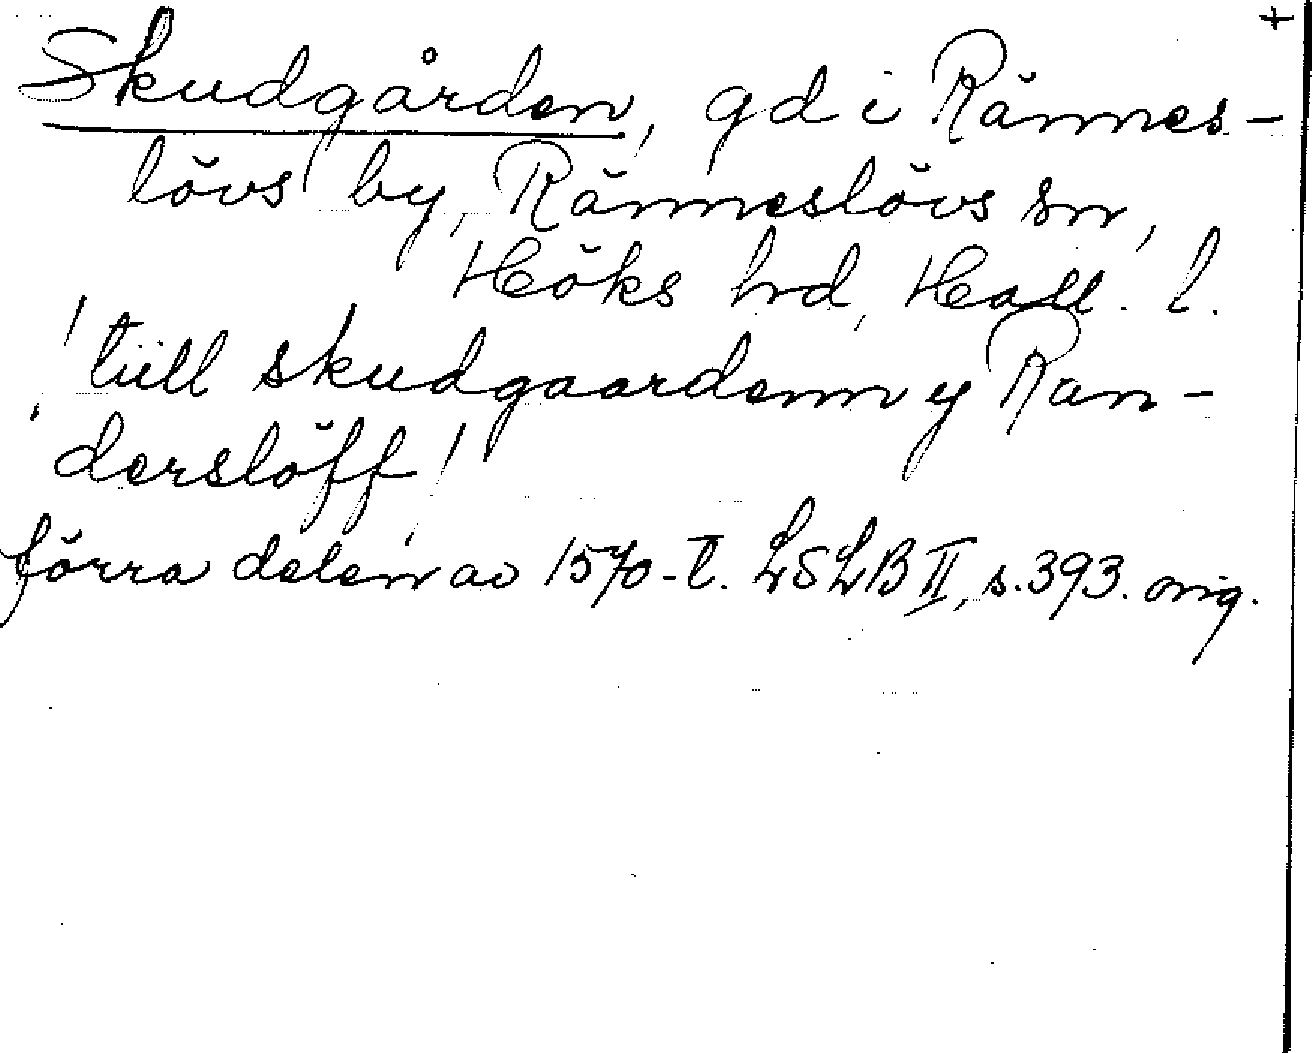 +
Skudgården, gd i Rännes-
lövs by, Ränneslövs sn,
Höks hrd, Hall. l.
'till skudgaardenn y Ran-
derslöff'
förra delen av 1570-t. LSLB II, s. 393. orig.